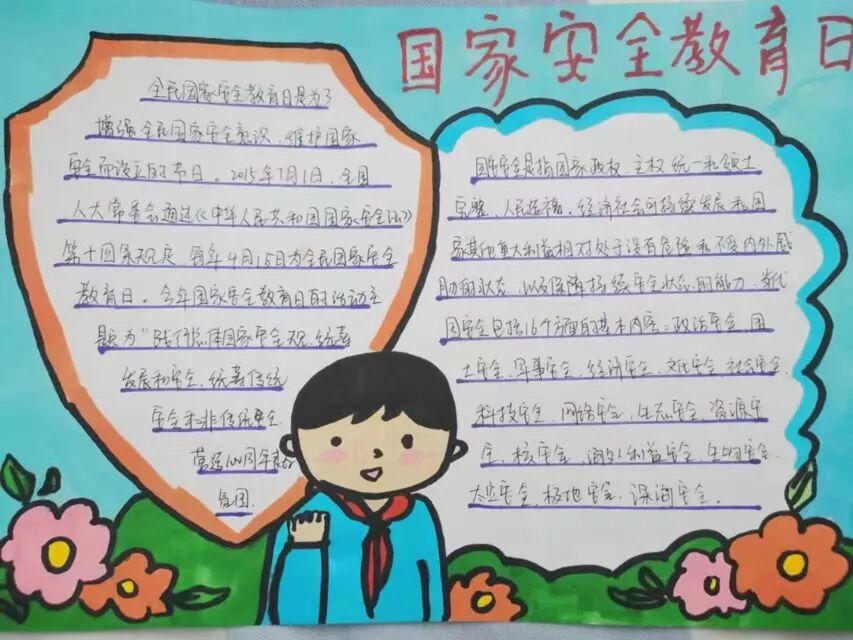 国家安全教育日
全民国家安全教育日是为了
增强全民国家安全意识，维护国家
安全而设立的节日。2015年7月1日，全国
人大常委会通过《中华人民共和国国家安全法》
第十四条规定 每年4月15日为全民国家安全
教育日。今年国家安全教育日的活动主
题为“践行总体国家安全观，统筹
发展和安全，统筹传统
安全和非传统安全，
营造100周年
氛围。
国家安全是指国家政权、主权、统一和领土
完整、人民福祉、经济社会可持续发展和国
家其他重大利益相对处于没有危险和不受内外威
胁的状态，以及保障持续安全状态的能力。当代
国安全包括16个方面的基本内容：政治安全、国
土安全、军事安全、经济安全、文化安全、社会安全、
科技安全、网络安全、生态安全、资源安
全、核安全、海外利益安全、生物安全、
太空安全、极地安全、深海安全。